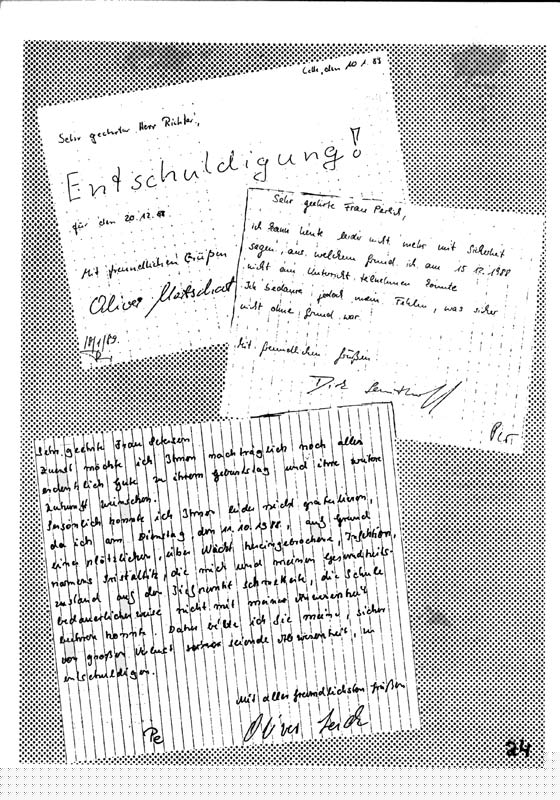 Celle, den 10.1.89
Sehr geehrter Herr Richter,
Entschuldigung!
für den 20.12.88
Mit freundlichen Grüßen
Oliver
10/1/89.
Sehr geehrte Frau
ich kann heute leider nicht mehr mit Sicherheit
sagen, aus welchem Grund ich am 15.12.1988
nicht am Unterricht teilnehmen konnte
Ich bedaure jedoch mein Fehlen, was sicher
nicht ohne Grund war.
Mit freundlichen Grüßen
Dirk
Sehr geehrte Frau Petersen
Zuerst möchte ich Ihnen nachträglich noch alles
erdenklich Gute zu ihrem Geburtstag und ihre weitere
Zukunft wünschen.
Persönlich konnte ich Ihnen leider nicht gratulieren,
da ich am Dienstag den 11.10.1988, auf Grund
eine plötzlichen, über Nacht hereingebrochene, Infektion,
namens, die mich und meinen Gesundheits-
zustand auf den Tiefpunkt schmetterte, die Schule
bedauerlicherweise nicht mit meiner Anwesenheit
beehren konnte. Daher bitte ich Sie meine, sicher
von großen Verlust seiende Abwesenheit, zu
entschuldigen.
Mit aller freundlichsten Grüßen
Oliver
Pe
24